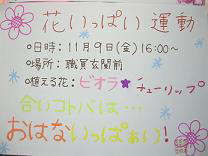 花いっぱい運動
○日時：11月9日(金)16:00〜
○場所：職員玄関前
○植える花：ビオラ★チューリップ
合いコトバは…
おはないっぱぁい！